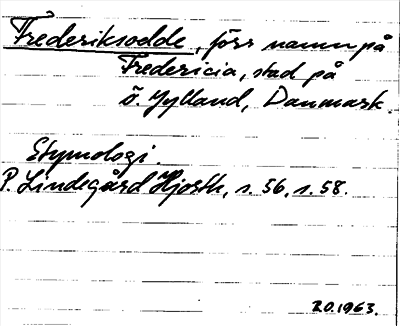 Frederiksodde, förr namn på
Fredericia, stad på
ö. Jylland, Danmark.
Etymologi.
P. Lindegård Hjorth, s. 56, s. 58.
R.O. 1963.